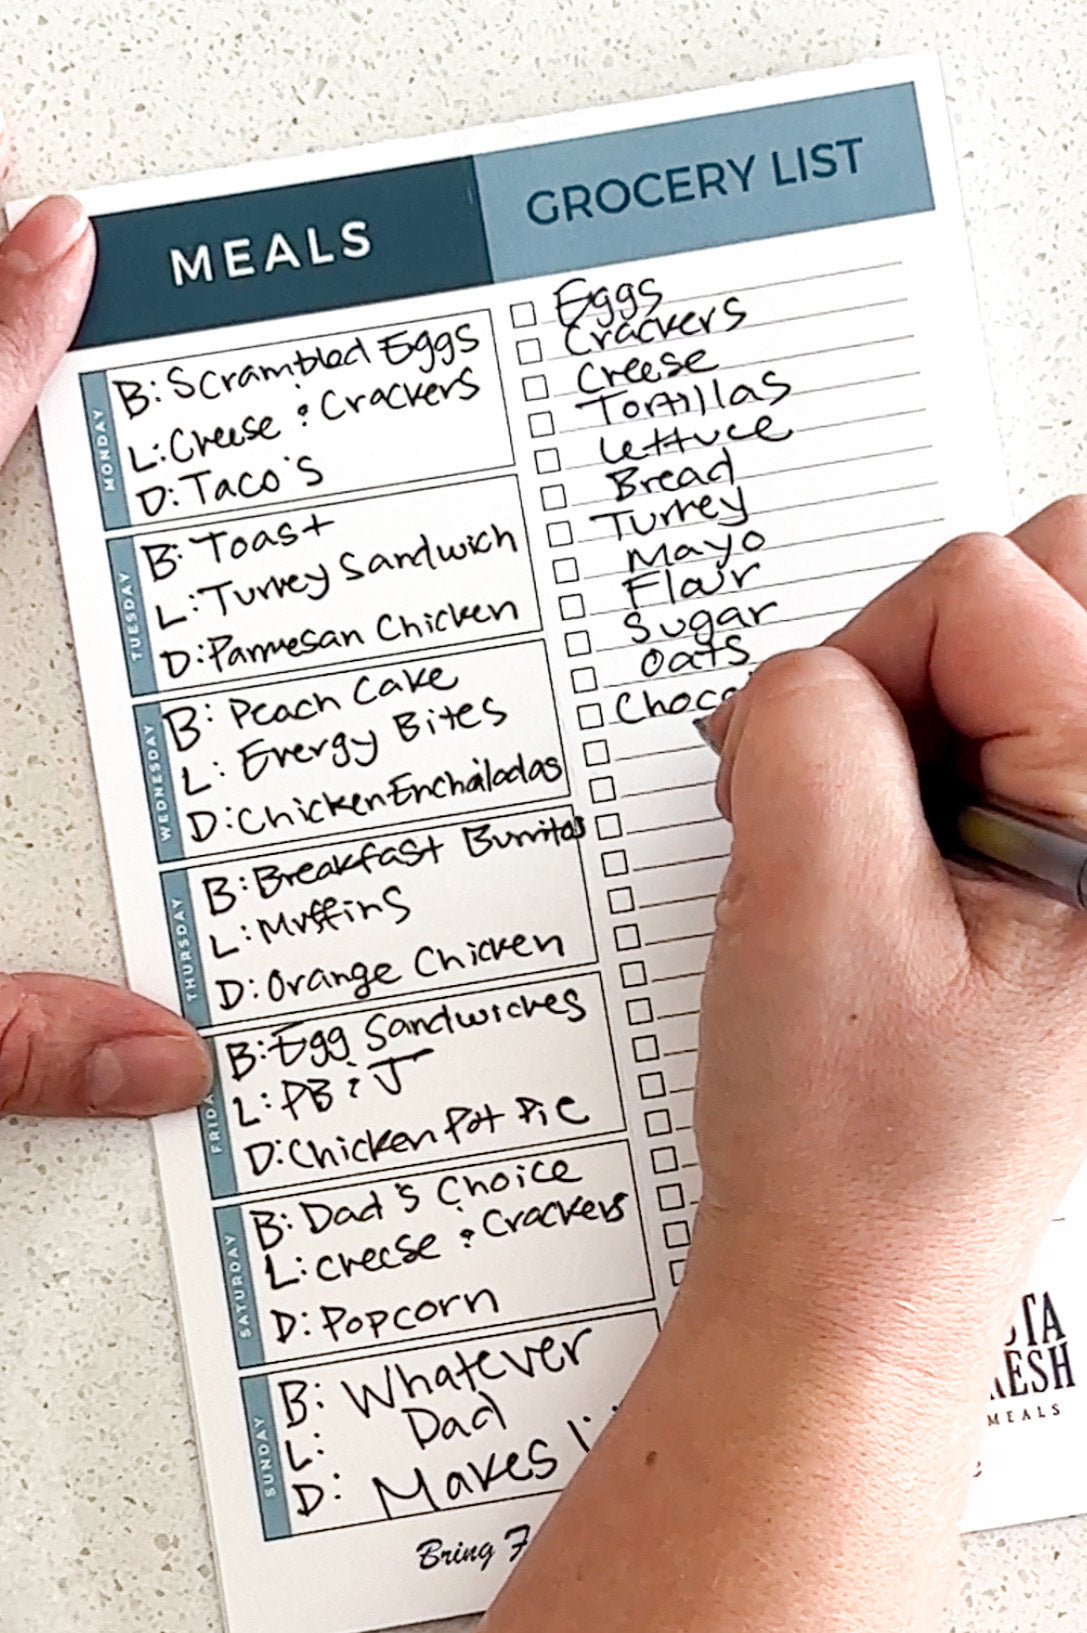 MEALS
GROCERY LIST
MONDAY
B: Scrambled Eggs
L: Cheese & Crackers
D: Taco's
TUESDAY
B: Toast
L: Turkey Sandwich
D: Parmesan Chicken
WEDNESDAY
B: Peach Cake
L: Energy Bites
D: Chicken Enchaladas
THURSDAY
B: Breakfast Burritos
L: Muffins
D: Orange Chicken
FRIDA
B: Egg Sandwiches
L: PB & J
D: Chicken Pot Pie
SATURDAY
B: Dad's Choice
L: Cheese & Crackers
D: Popcorn
SUNDAY
B: Whatever
L: Dad
D: Makes
Bring F
Eggs
Crackers
Cheese
Tortillas
Lettuce
Bread
Turkey
Mayo
Flair
Sugar
Oats
Choco
TA
RESH
MEALS